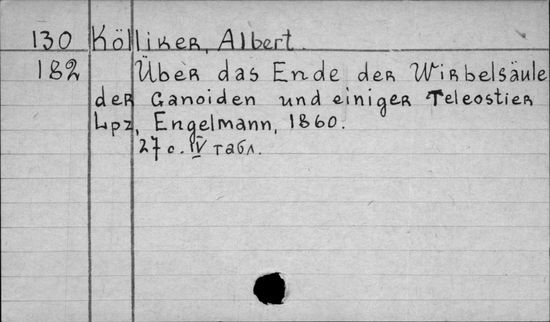 130 Kölliker, Albert.
182 Über das Ende der Wirbelsäule
der Ganoiden und einiger Teleostier
Lpz, Engelmann, 1860.
27 с. IV табл.